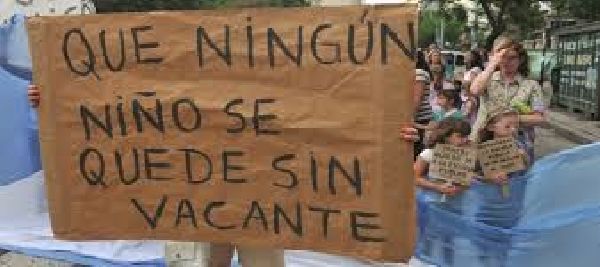 QUE NINGÚN
NIÑO SE
QUEDE SIN
VACANTE